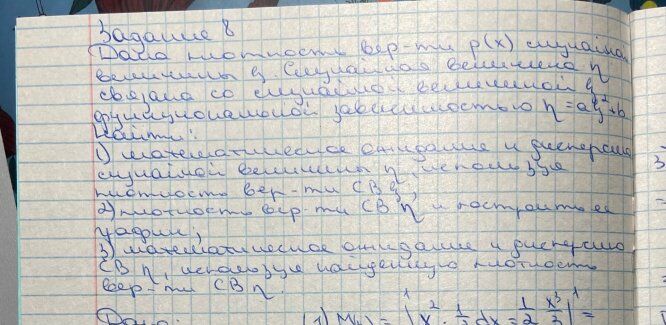 Задание 8
Дана плотность вер-ти p(x) случайной
величины ξ. Случайная величина η
связана со случайной величиной ξ
функциональной зависимостью η = aξ²+b
Найти:
1) математическое ожидание и дисперсию
случайной величины η, используя
плотность вер-ти СВ ξ;
2) плотность вер-ти СВ η и построить ее
график;
3) математическое ожидание и дисперсию
СВ η, используя найденную плотность
вер-ти СВ η.
Дано: